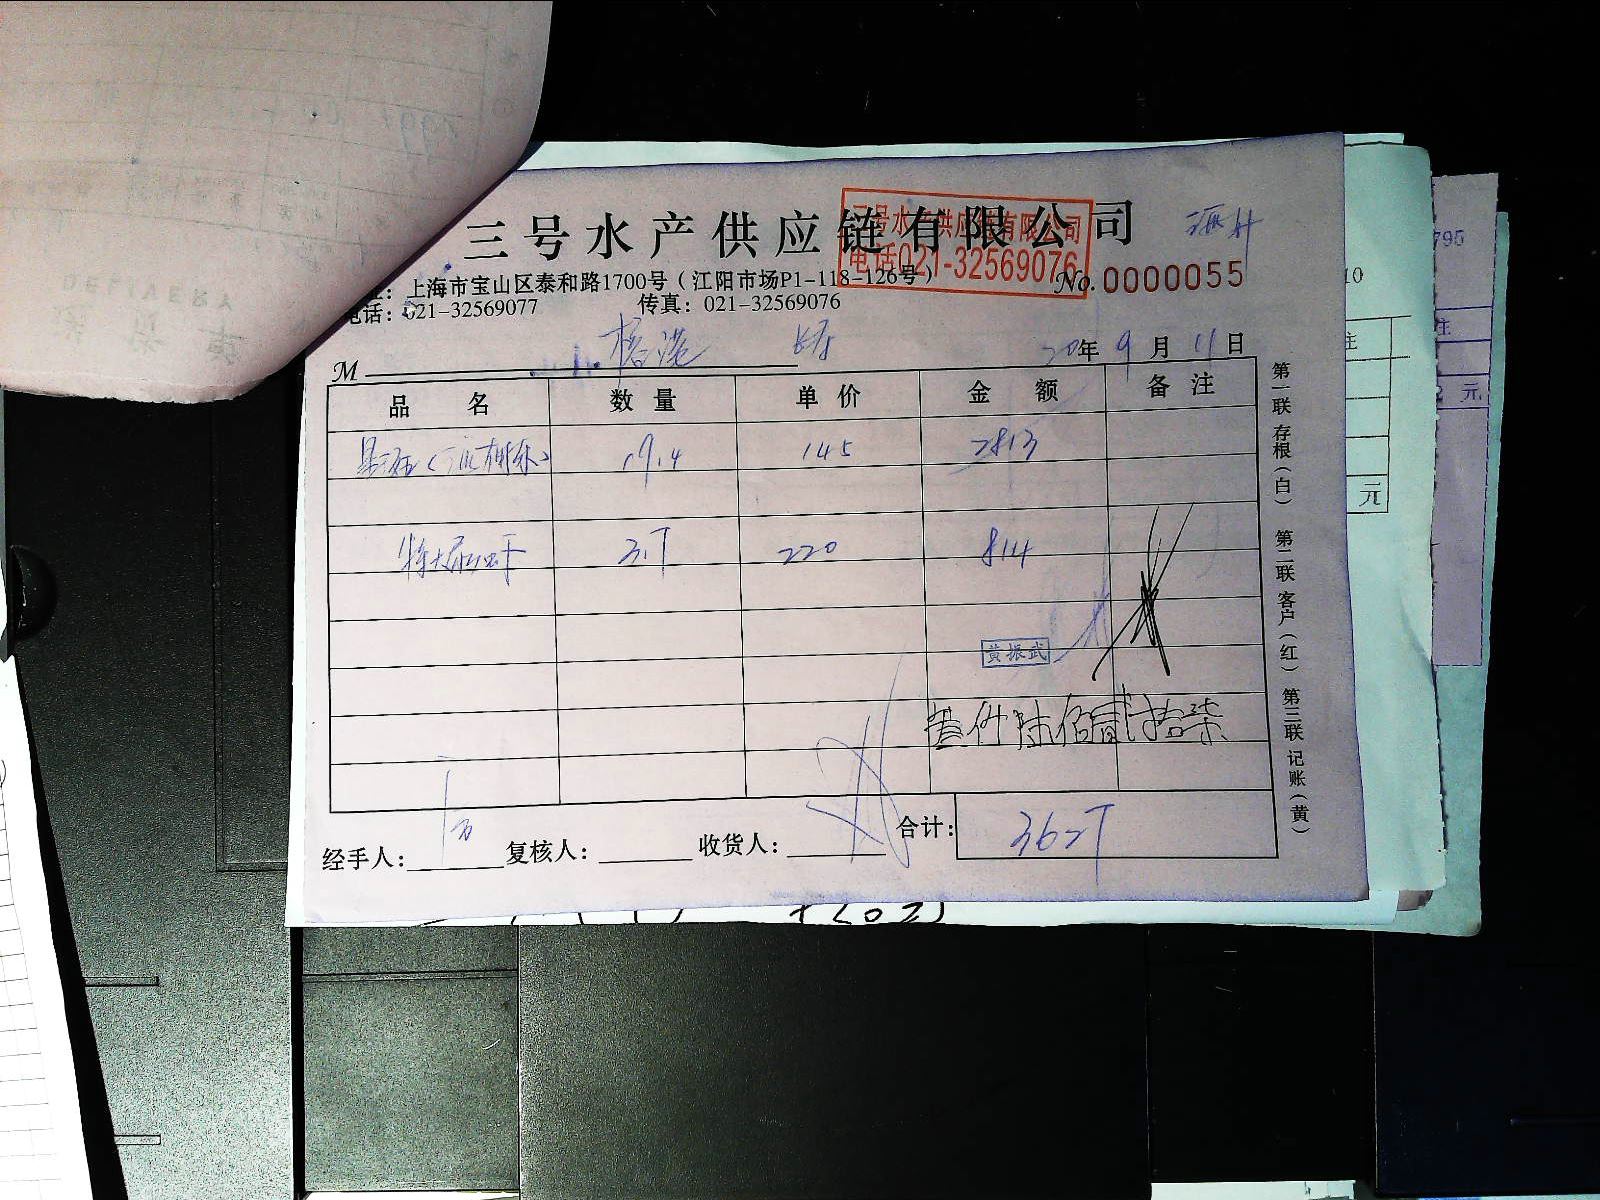 三号水产供应链有限公司
三号水产供应链有限公司
电话021-32569076
上海市宝山区泰和路1700号（江阳市场P1-118-126号）
No. 0000055
电话：021-32569077 传真：021-32569076
M
20年 9 月 11 日
品 名 数 量 单 价 金 额 备 注
19.4 145 2813
3.7 220 814
黄振武
叁仟陆佰贰拾柒
合计： 3627
经手人： 复核人： 收货人：
第一联 存根（白） 第二联 客户（红） 第三联 记账（黄）
795
10
注
注
元
元
DELIVERY